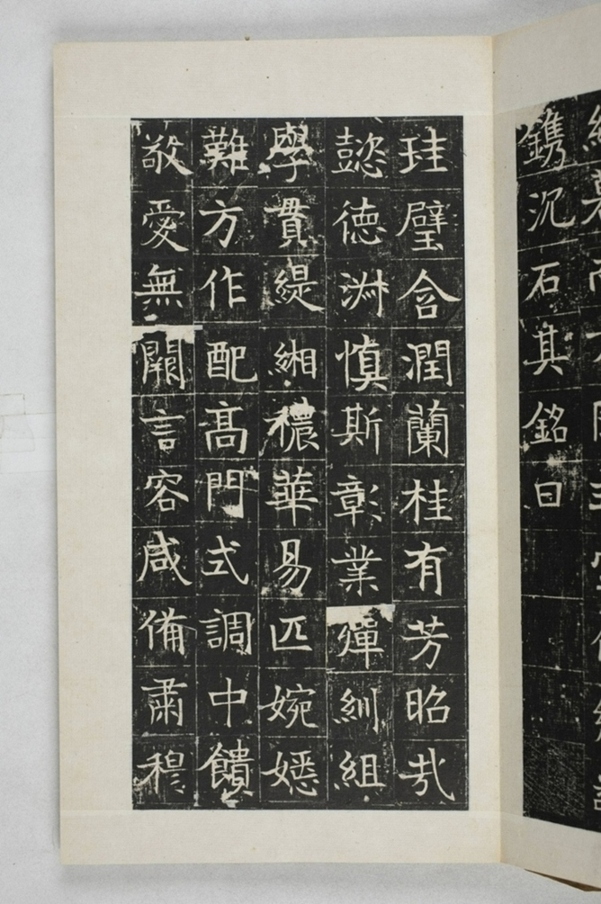 鐫沉石其銘曰
珪璧含潤蘭桂有芳昭哉
懿德淑慎斯彰業煇紃組
學貫緹緗穠華易匹婉嫕
難方作配髙門式調中饋
敬愛無闕言容咸備肅穆